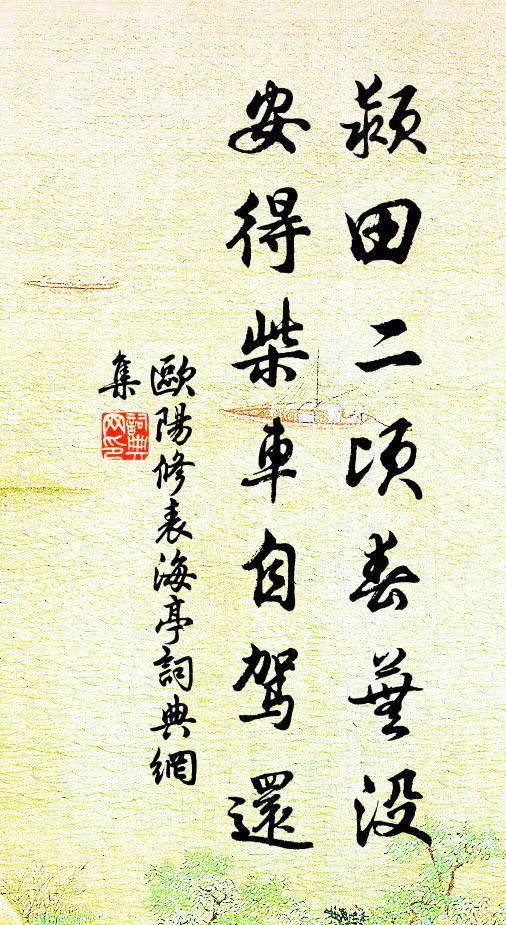 潁田二頃春蕪没
安得柴車自駕還
歐陽修表海亭詞典網
集
詞典网印